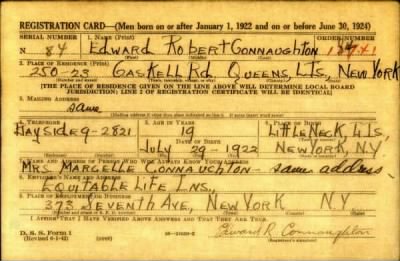 REGISTRATION CARD—(Men born on or after January 1, 1922 and on or before June 30, 1924)
SERIAL NUMBER 1. NAME (Print) ORDER NUMBER
N 84 Edward Robert Connaughton 13741
2. PLACE OF RESIDENCE (Print)
250-23 Gaskell Rd Queens, L.I., New York
[THE PLACE OF RESIDENCE GIVEN ON THE LINE ABOVE WILL DETERMINE LOCAL BOARD
JURISDICTION; LINE 2 OF REGISTRATION CERTIFICATE WILL BE IDENTICAL]
3. MAILING ADDRESS
same
4. TELEPHONE 5. AGE IN YEARS 6. PLACE OF BIRTH
Bayside 9-2821 19 Little Neck, L.I.
DATE OF BIRTH
July 29-1922 New York, N.Y
7. NAME AND ADDRESS OF PERSON WHO WILL ALWAYS KNOW YOUR ADDRESS
Mrs Margelle Connaughton - same address
8. EMPLOYER'S NAME AND ADDRESS
Equitable Life Ins.,
9. PLACE OF EMPLOYMENT OR BUSINESS
393 Seventh Ave., New York N.Y
I AFFIRM THAT I HAVE VERIFIED ABOVE ANSWERS AND THAT THEY ARE TRUE.
D. S. S. Form 1
(Revised 6-1-42) Edward R. Connaughton